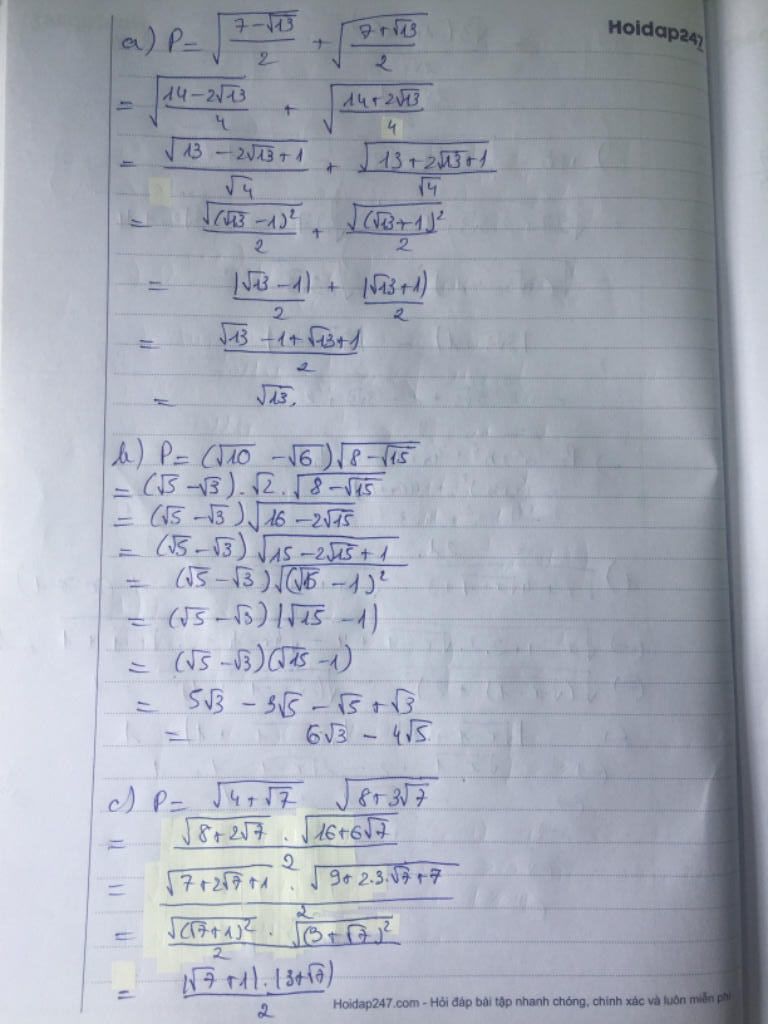 Hoidap247
a) P = √((7-√13)/2) + √((7+√13)/2)
= √((14-2√13)/4) + √((14+2√13)/4)
= √(13-2√13+1)/√4 + √(13+2√13+1)/√4
= √((√13-1)²)/2 + √((√13+1)²)/2
= |√13-1|/2 + |√13+1|/2
= (√13-1+√13+1)/2
= √13.
b) P = (√10 - √6)√(8-√15)
= (√5-√3).√2.√(8-√15)
= (√5-√3)√(16-2√15)
= (√5-√3)√(15-2√15+1)
= (√5-√3)√((√15-1)²)
= (√5-√3)|√15-1|
= (√5-√3)(√15-1)
= 5√3 - 3√5 - √5 + √3
= 6√3 - 4√5
c) P = √(4+√7) √(8+3√7)
= (√(8+2√7) . √(16+6√7))/2
= (√(7+2√7+1) . √(9+2.3.√7+7))/2
= (√((√7+1)²) . √((3+√7)²))/2
= |√7+1|.|3+√7|/2
Hoidap247.com - Hỏi đáp bài tập nhanh chóng, chính xác và luôn miễn phí